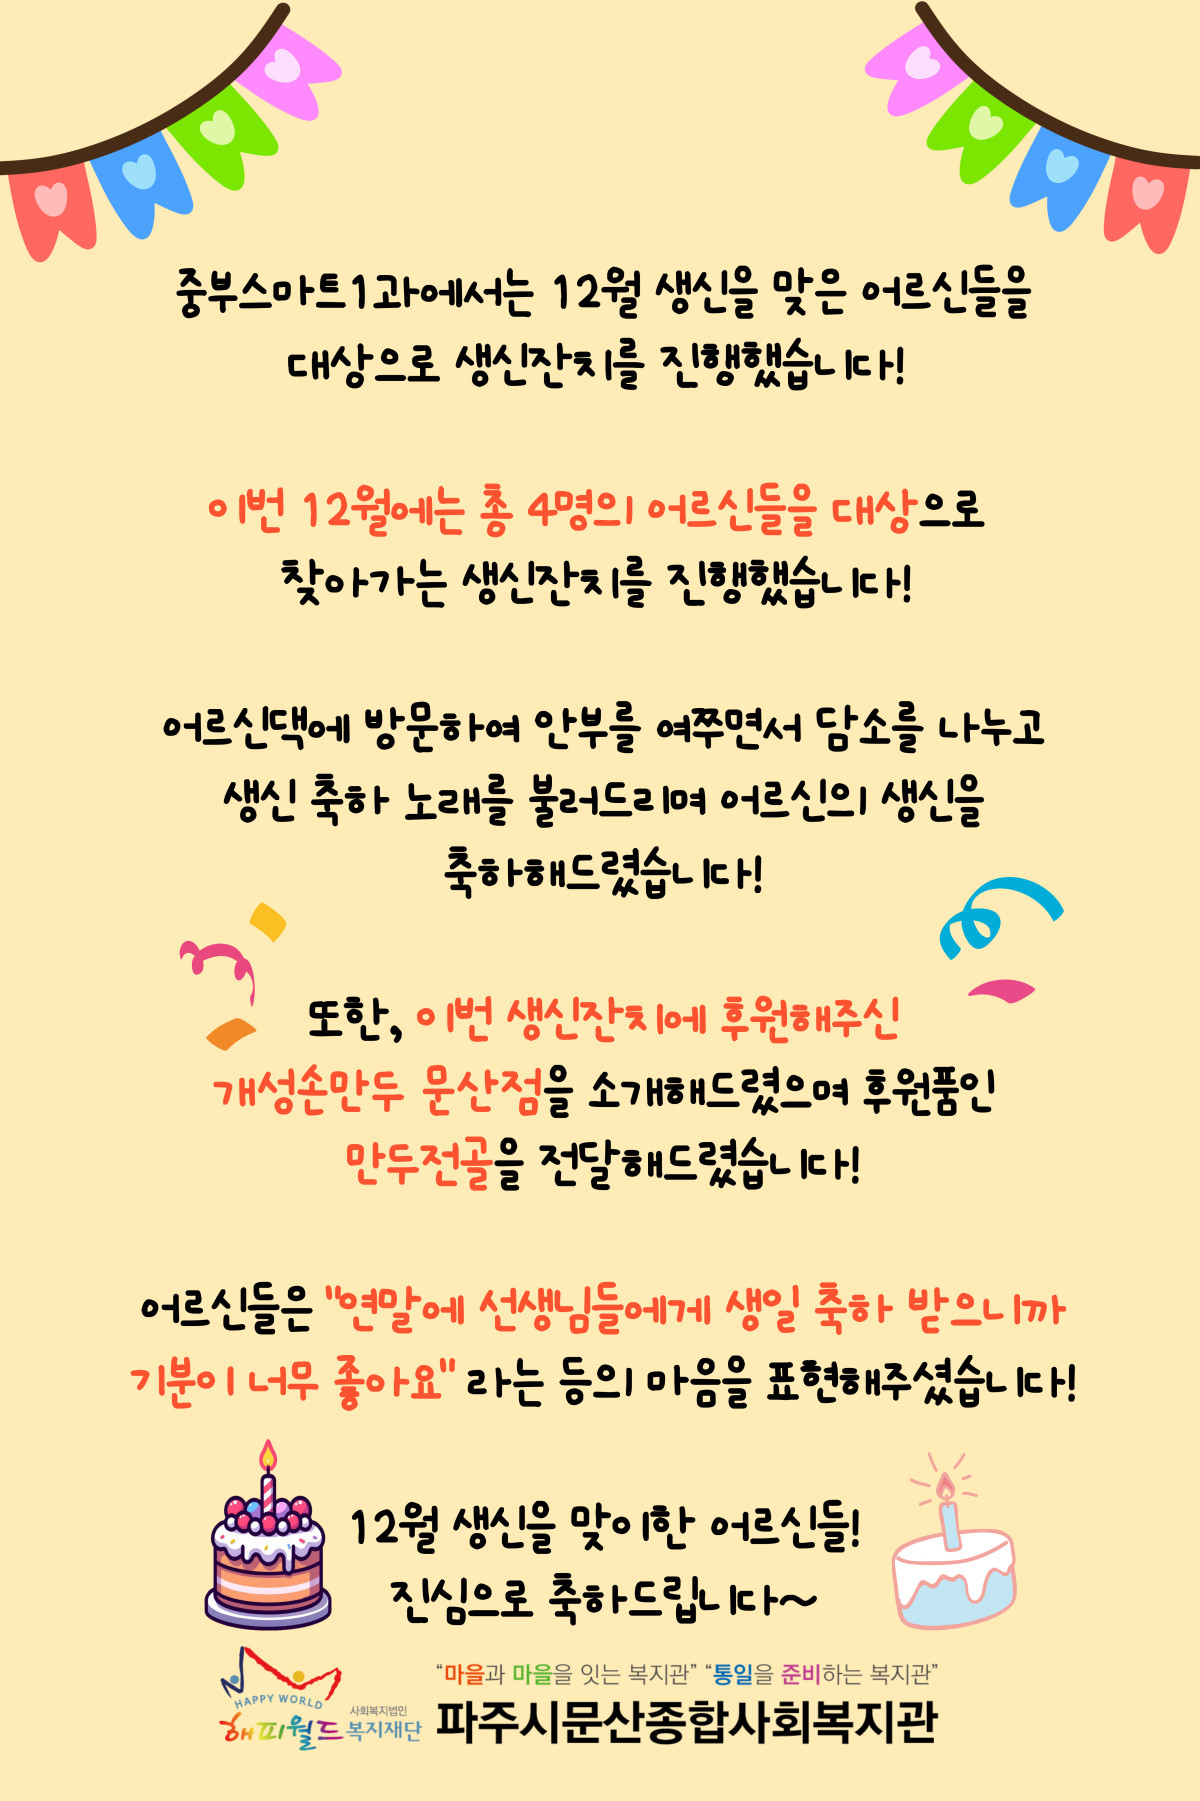 중부스마트1과에서는 12월 생신을 맞은 어르신들을
대상으로 생신잔치를 진행했습니다!
이번 12월에는 총 4명의 어르신들을 대상으로
찾아가는 생신잔치를 진행했습니다!
어르신댁에 방문하여 안부를 여쭈면서 담소를 나누고
생신 축하 노래를 불러드리며 어르신의 생신을
축하해드렸습니다!
또한, 이번 생신잔치에 후원해주신
개성손만두 문산점을 소개해드렸으며 후원품인
만두전골을 전달해드렸습니다!
어르신들은 "연말에 선생님들에게 생일 축하 받으니까
기분이 너무 좋아요" 라는 등의 마음을 표현해주셨습니다!
12월 생신을 맞이한 어르신들!
진심으로 축하드립니다~
HAPPY WORLD
사회복지법인
해피월드 복지재단
“마을과 마을을 잇는 복지관” “통일을 준비하는 복지관”
파주시문산종합사회복지관